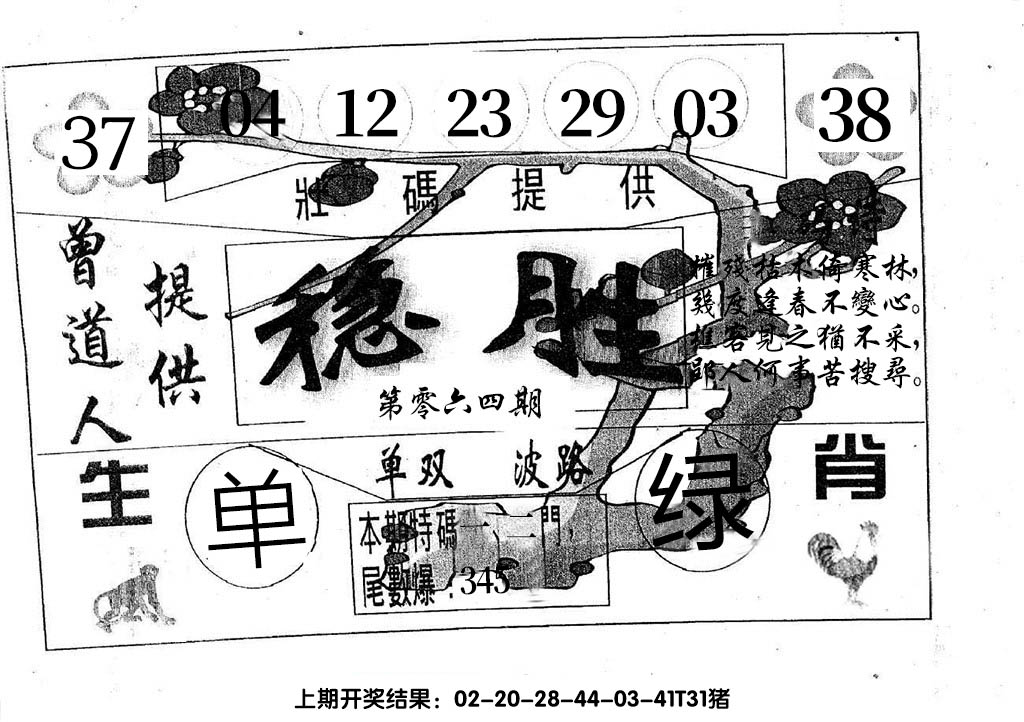 37 04 12 23 29 03 38
壯碼提供
特
曾道人
提供
稳胜
第零六四期
摧殘枯木倚寒林,
幾度逢春不變心。
樵客見之猶不采,
郢人何事苦搜尋。
单双 波路
生肖
单
绿
本期特碼一、二門,
尾數爆:345
上期开奖结果:02-20-28-44-03-41T31猪